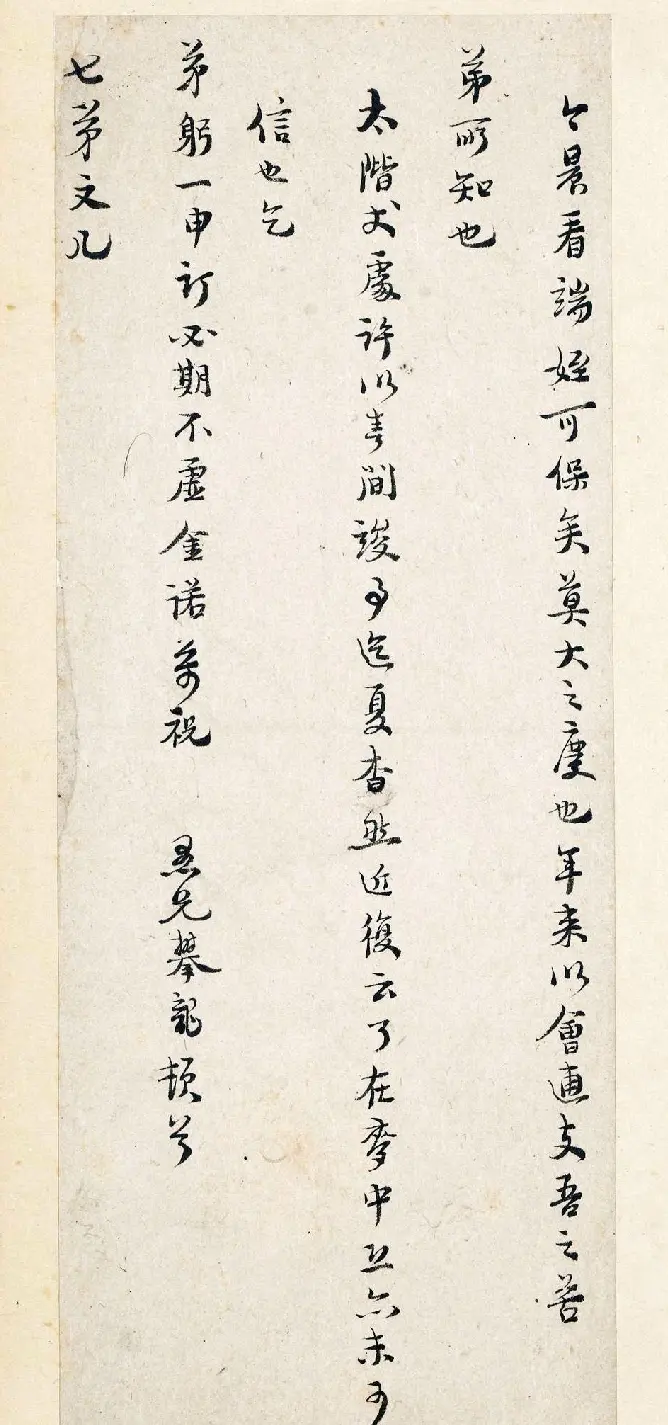 今晨看端姪可保矣莫大之慶也年来以會逋支吾之苦
弟所知也
太階丈處許以春間竣事迄夏杳然近復云了在麥中且亦未可
信也乞
弟躬一申訂必期不虛金諾萬祝 愚兄攀龍頓首
七弟文几